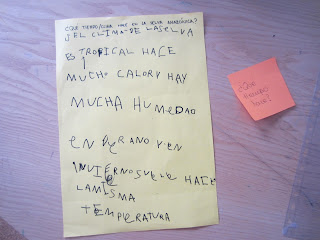 ¿QUÉ TIEMPO/CLIMA HACE EN LA SELVA AMAZÓNICA?
EL CLIMA DE LA SELVA
TROPICAL HACE
MUCHO CALOR Y HAY
MUCHA HUMEDAD
EN VERANO Y EN
INVIERNO SUELE HACE
LA MISMA
TEMPERATURA
¿Qué
tiempo
hace?